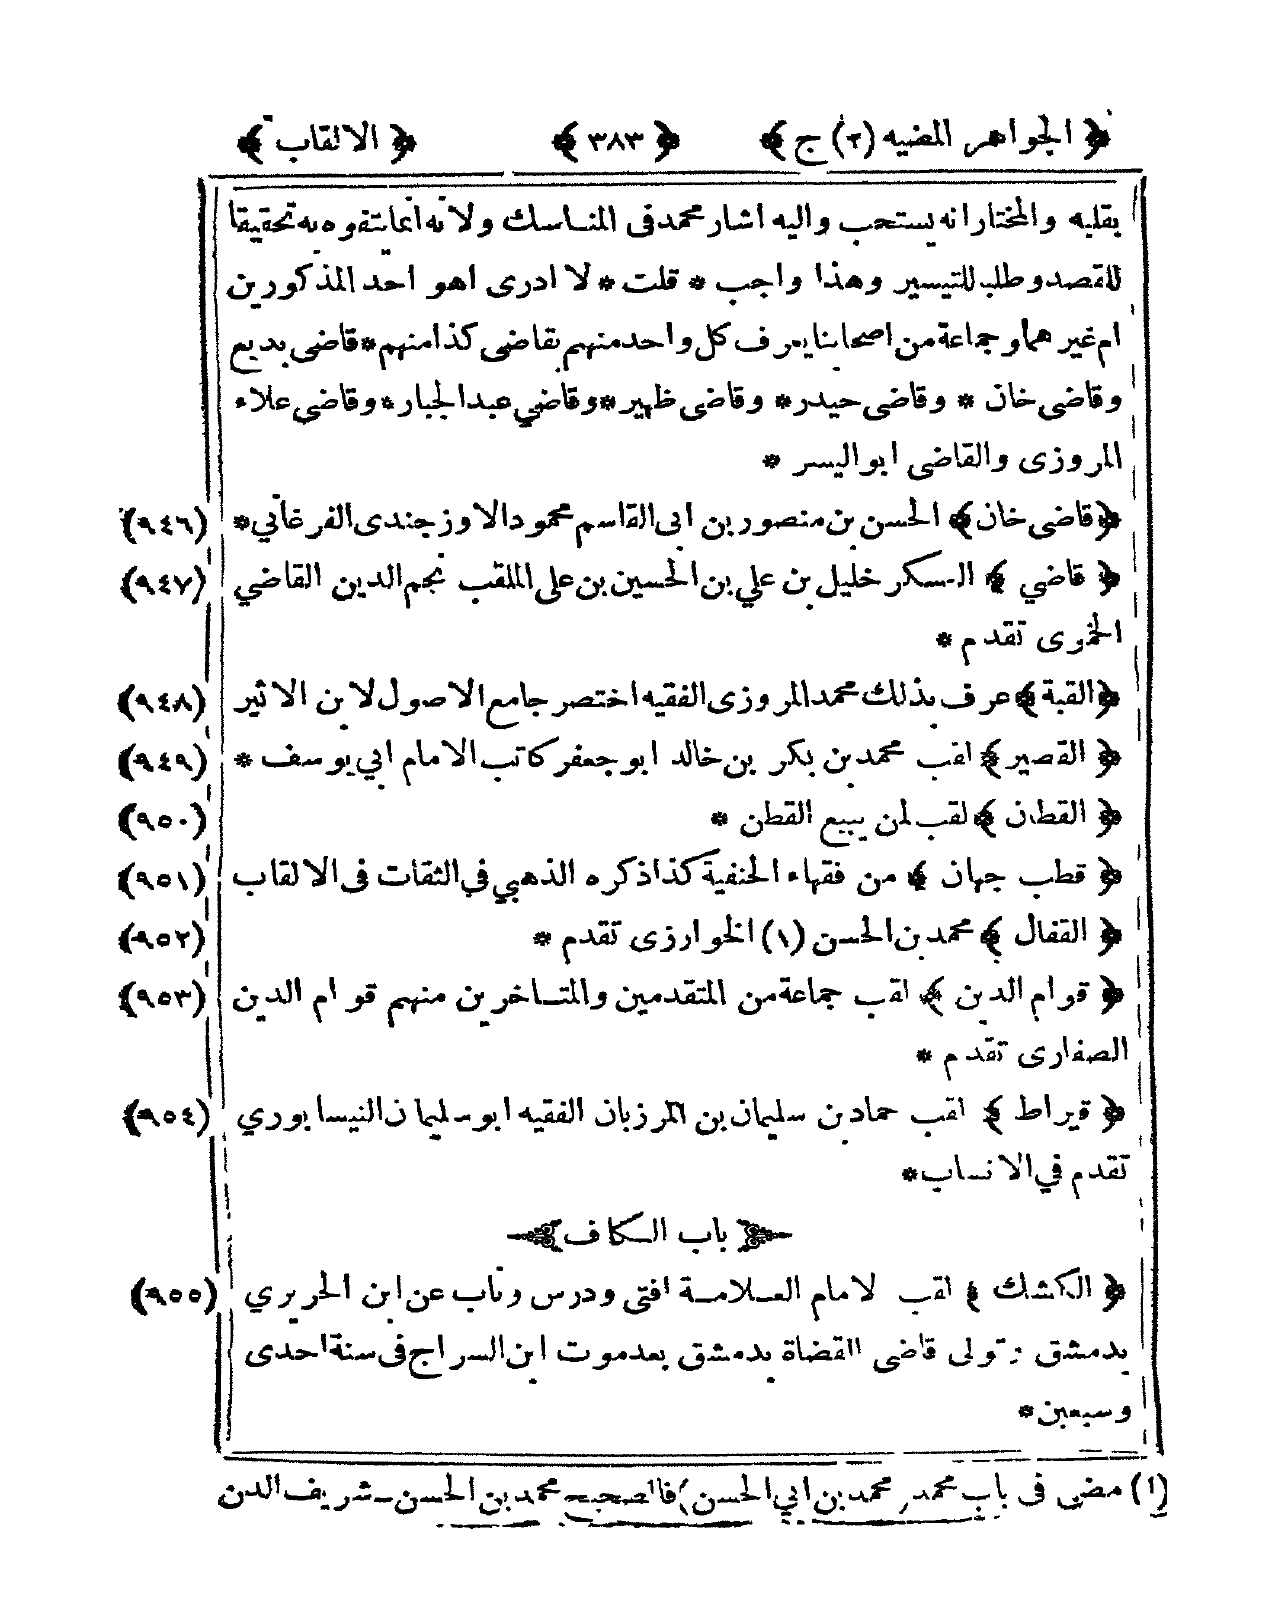 ﴿ الجواهر المضيه (٢) ج ﴾ ﴿ ٣٨٣ ﴾ ﴿ الالقاب ﴾
بقلبه والمختار انه يستحب واليه اشار محمد فى المناسك ولانه انما يتفوه به تحقيقا
للقصد وطلب للتيسير وهذا واجب * قلت * لا ادرى اهو احد المذكورين
ام غير هما وجماعة من اصحابنا يعرف كل واحد منهم بقاضى كذا منهم * قاضى بديع
وقاضى خان * وقاضى حيدر * وقاضى ظهير * وقاضي عبد الجبار * وقاضى علاء
المروزى والقاضى ابو اليسر *
﴿ قاضى خان ﴾ الحسن بن منصور بن ابى القاسم محمود الاوزجندى الفرغاني * (٩٤٦)
﴿ قاضي ﴾ العسكر خليل بن علي بن الحسين بن على الملقب نجم الدين القاضي (٩٤٧)
الحموى تقدم *
﴿ القبة ﴾ عرف بذلك محمد المروزى الفقيه اختصر جامع الاصول لابن الاثير (٩٤٨)
﴿ القصير ﴾ لقب محمد بن بكر بن خالد ابو جعفر كاتب الامام ابي يوسف * (٩٤٩)
﴿ القطان ﴾ لقب لمن يبيع القطن * (٩٥٠)
﴿ قطب جهان ﴾ من فقهاء الحنفية كذا ذكره الذهبي في الثقات فى الالقاب (٩٥١)
﴿ القفال ﴾ محمد بن الحسن (١) الخوارزى تقدم * (٩٥٢)
﴿ قوام الدين ﴾ لقب جماعة من المتقدمين والمتاخرين منهم قوام الدين (٩٥٣)
الصفارى تقدم *
﴿ قيراط ﴾ لقب حماد بن سليمان بن المرزبان الفقيه ابو سليمان النيسابوري (٩٥٤)
تقدم في الانساب *
باب الكاف
﴿ الكشك ﴾ لقب لامام العلامة افتى ودرس وناب عن ابن الحريري (٩٥٥)
بدمشق وتولى قاضى القضاة بدمشق بعد موت ابن السراج فى سنة احدى
وسبعين *
(١) مضى فى باب محمد محمد بن ابي الحسن فالصحيح محمد بن الحسن ـ شريف الدين